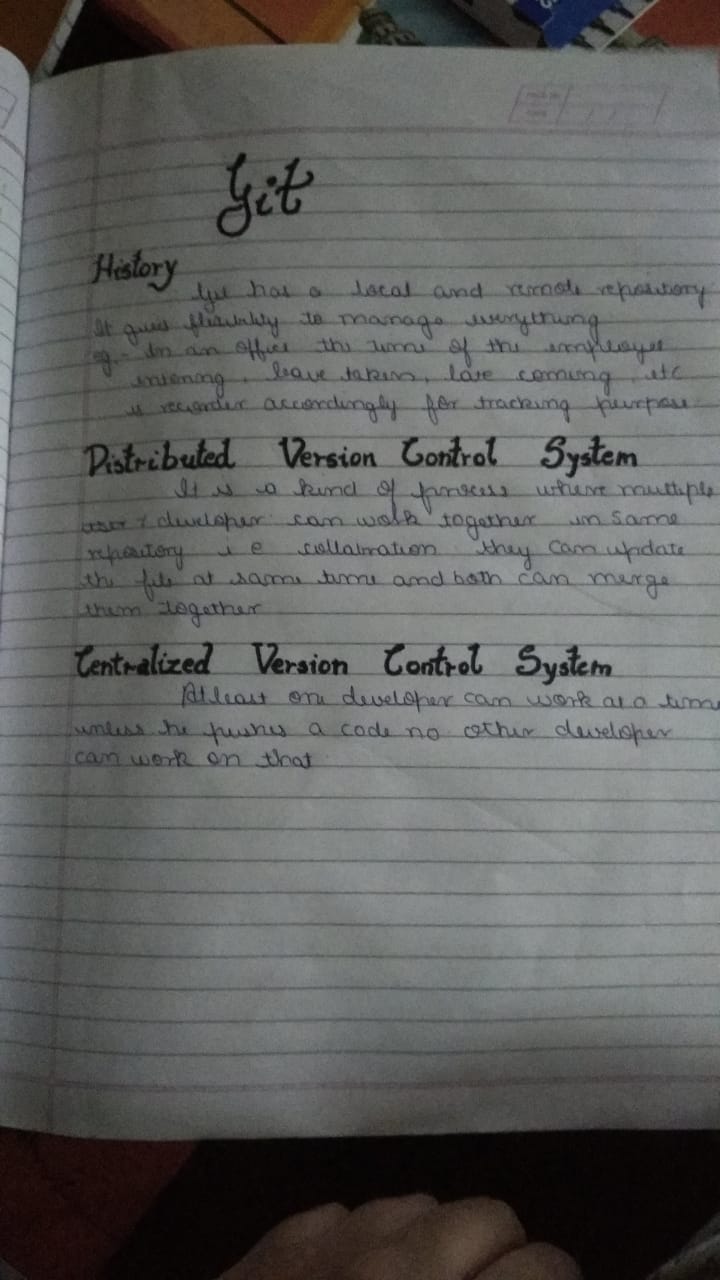 Git
History
Git has a local and remote repository
It gives flexibility to manage everything
eg - In an office the time of the employee
entering, leave taken, late coming, etc
is recorder accordingly for tracking purpose
Distributed Version Control System
It is a kind of process where multiple
user / developer can work together in same
repository i e collabration they can update
the file at same time and both can merge
them together
Centralized Version Control System
Atleast one developer can work at a time
unless he pushes a code no other developer
can work on that